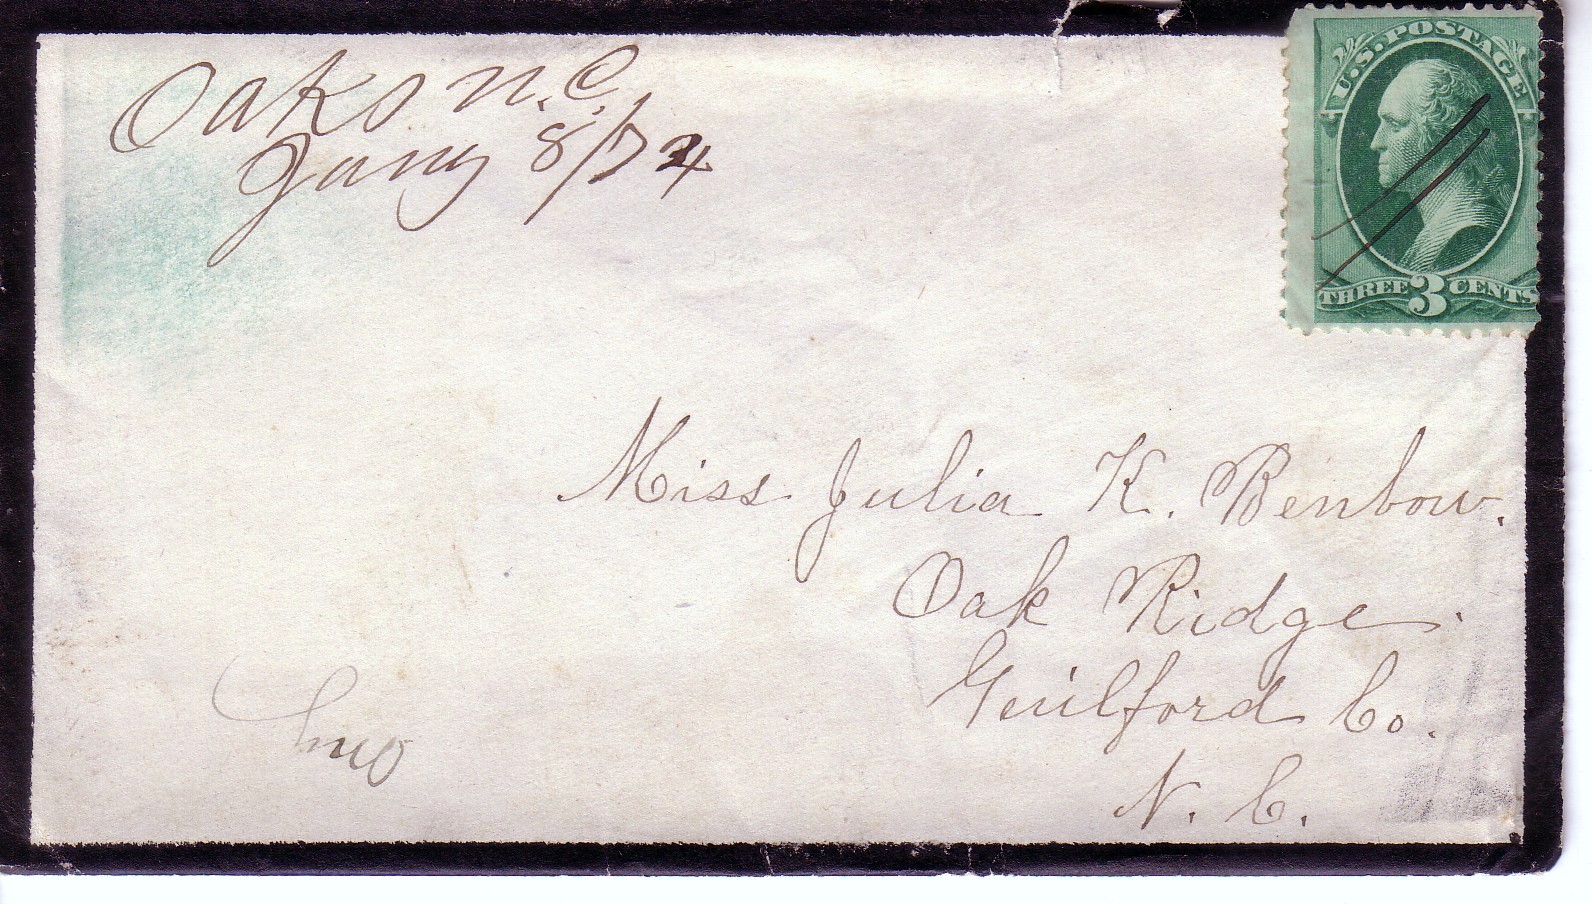 Oaks N.C.
Jany 8/74
U.S. POSTAGE
THREE 3 CENTS
Miss Julia K. Benbow.
Oak Ridge.
Guilford Co.
N. C.